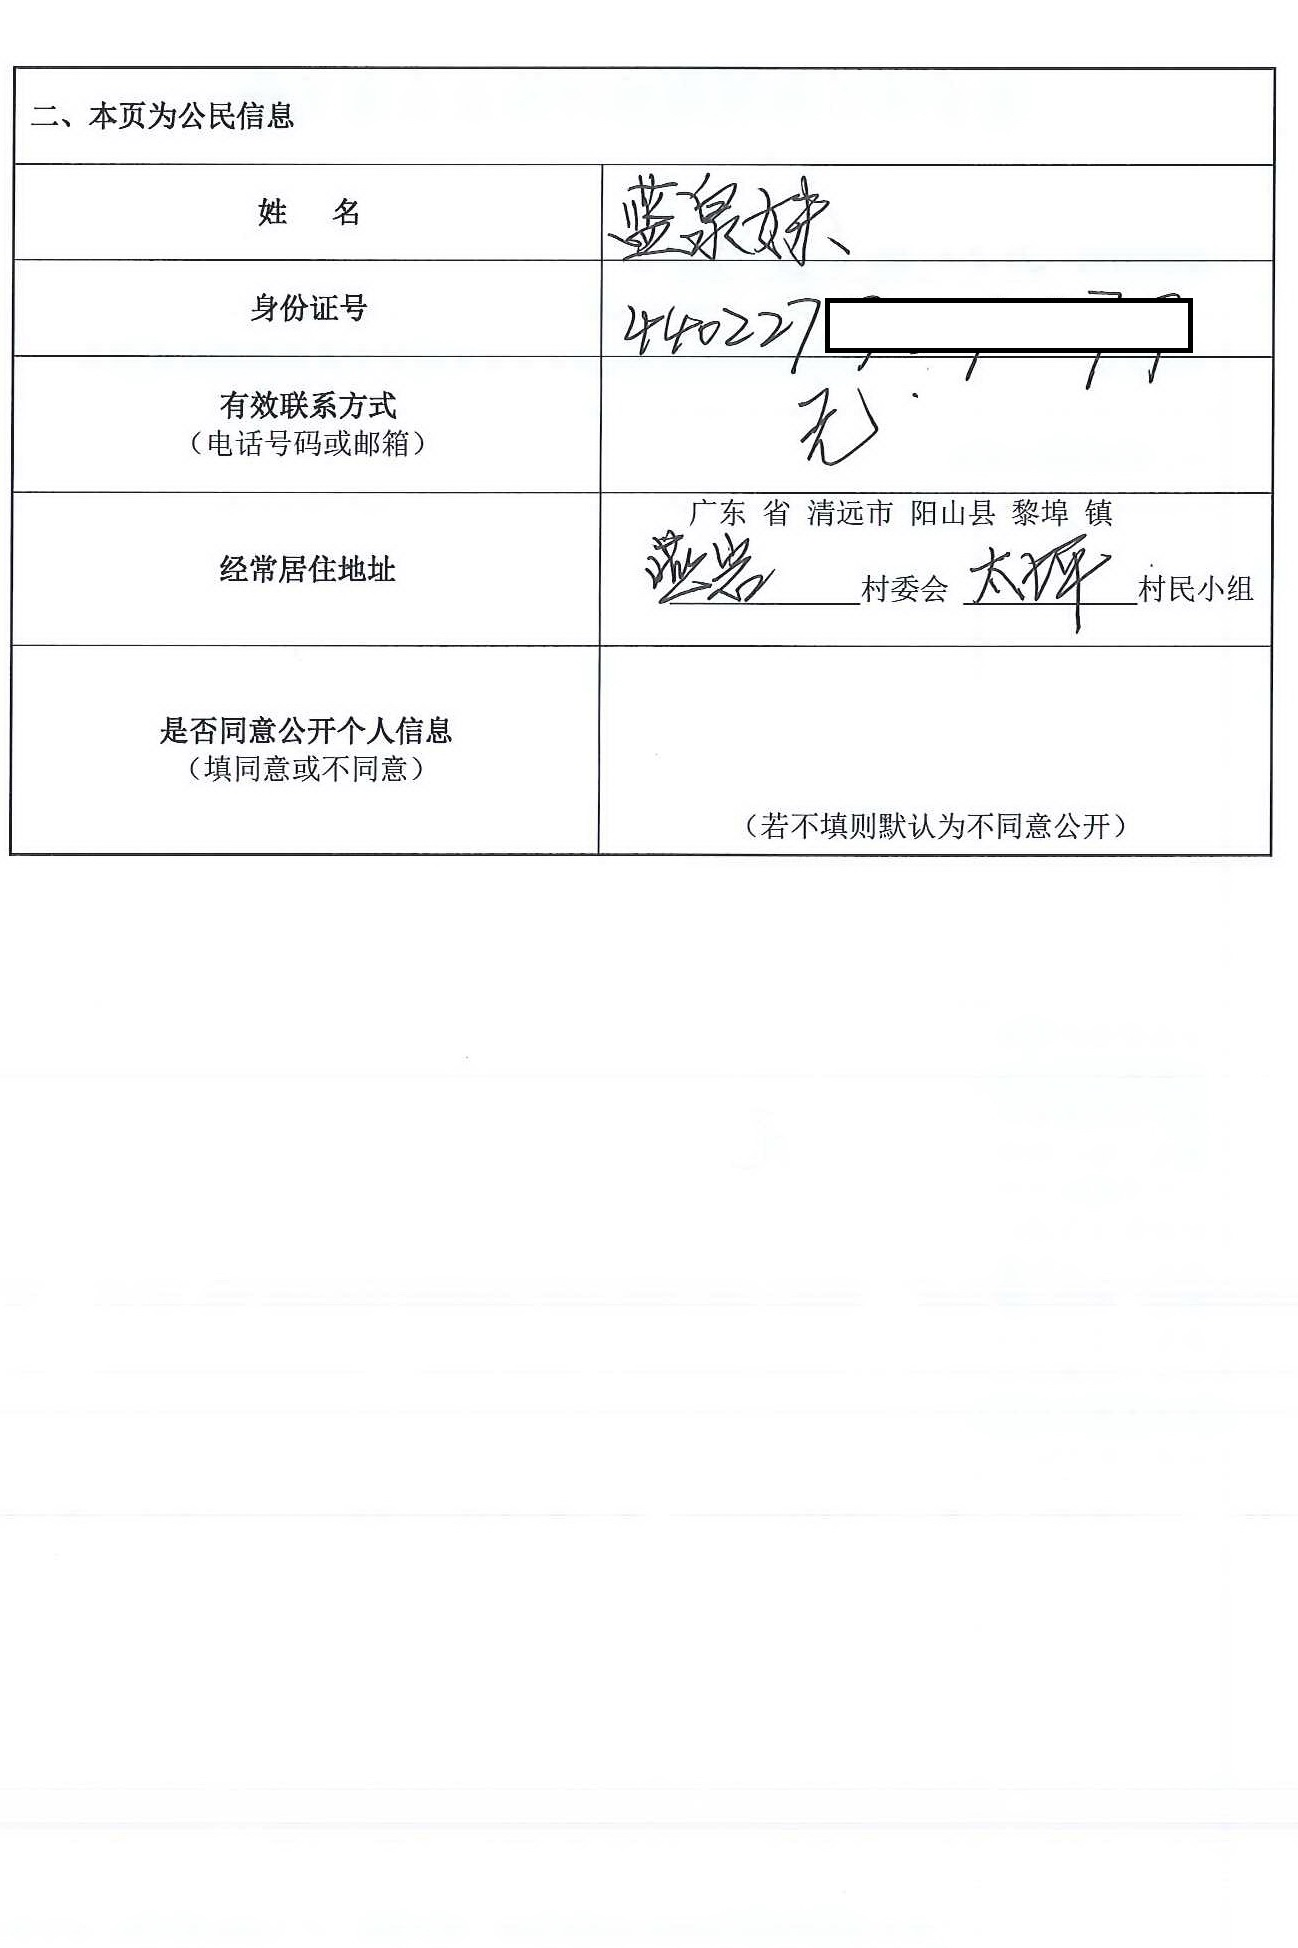 二、本页为公民信息
姓 名
蓝泉妹
身份证号
440227
有效联系方式
（电话号码或邮箱）
无.
经常居住地址
广东 省 清远市 阳山县 黎埠 镇
燕岩 村委会 太坪 村民小组
是否同意公开个人信息
（填同意或不同意）
（若不填则默认为不同意公开）